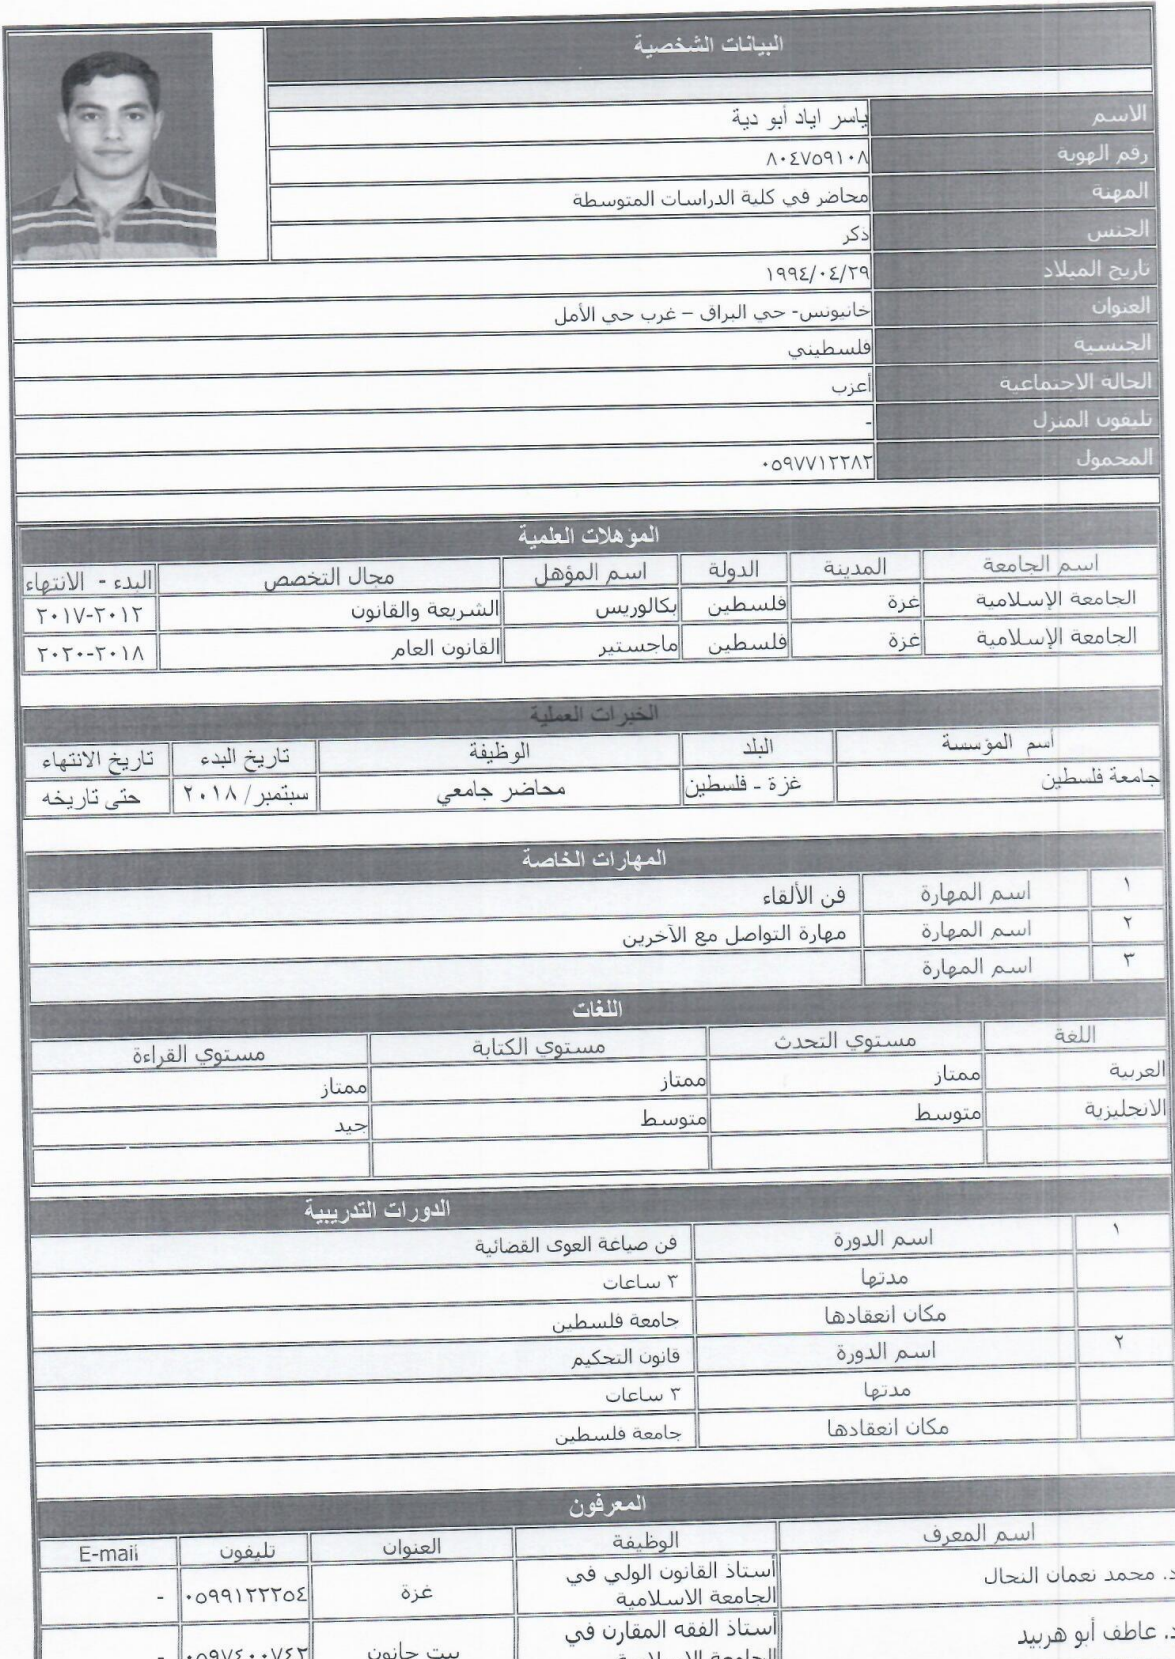 البيانات الشخصية
الاسم ياسر اياد أبو دية
رقم الهوية ٨٠٤٧٥٩١٠٨
المهنة محاضر في كلية الدراسات المتوسطة
الجنس ذكر
تاريخ الميلاد ١٩٩٤/٠٤/٢٩
العنوان خانيونس- حي البراق – غرب حي الأمل
الجنسية فلسطيني
الحالة الاجتماعية أعزب
تليفون المنزل -
المحمول ٠٥٩٧٧١٢٢٨٢
المؤهلات العلمية
اسم الجامعة المدينة الدولة اسم المؤهل مجال التخصص البدء - الانتهاء
الجامعة الإسلامية غزة فلسطين بكالوريس الشريعة والقانون ٢٠١٢-٢٠١٧
الجامعة الإسلامية غزة فلسطين ماجستير القانون العام ٢٠١٨-٢٠٢٠
الخبرات العملية
أسم المؤسسة البلد الوظيفة تاريخ البدء تاريخ الانتهاء
جامعة فلسطين غزة - فلسطين محاضر جامعي سبتمبر/ ٢٠١٨ حتى تاريخه
المهارات الخاصة
١ اسم المهارة فن الألقاء
٢ اسم المهارة مهارة التواصل مع الآخرين
٣ اسم المهارة
اللغات
اللغة مستوي التحدث مستوي الكتابة مستوي القراءة
العربية ممتاز ممتاز ممتاز
الانجليزية متوسط متوسط جيد
الدورات التدريبية
١ اسم الدورة فن صياغة العوى القضائية
مدتها ٣ ساعات
مكان انعقادها جامعة فلسطين
٢ اسم الدورة قانون التحكيم
مدتها ٣ ساعات
مكان انعقادها جامعة فلسطين
المعرفون
اسم المعرف الوظيفة العنوان تليفون E-mail
د. محمد نعمان النحال أستاذ القانون الولي في غزة ٠٥٩٩١٢٢٢٥٤ -
الجامعة الاسلامية
د. عاطف أبو هربيد أستاذ الفقه المقارن في بيت حانون ٠٥٩٧٤٠٠٧٤٢ -